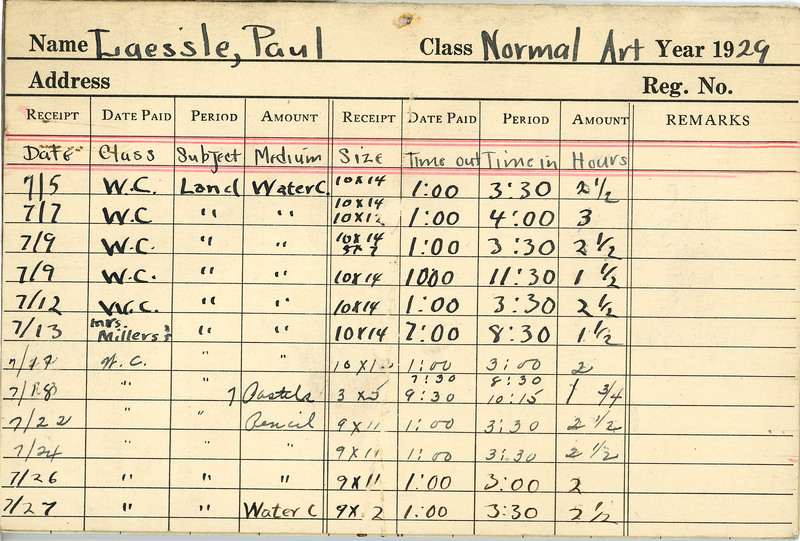 Name Laessle, Paul Class Normal Art Year 1929
Address Reg. No.
RECEIPT DATE PAID PERIOD AMOUNT RECEIPT DATE PAID PERIOD AMOUNT REMARKS
Date Class Subject Medium Size Time out Time in Hours
7/5 W.C. Land Water C. 10x14 1:00 3:30 2 1/2
10x14
7/7 W.C. " " 10x12 1:00 4:00 3
7/9 W.C. " " 10x14 1:00 3:30 2 1/2
7/9 W.C. " " 10x14 1000 11:30 1 1/2
7/12 W.C. " " 10x14 1:00 3:30 2 1/2
7/13 Mrs. Millers " " 10x14 7:00 8:30 1 1/2
W.C. " " 1:00 3:00 2
7:30 8:30
7/18 " " Pastels 3 x 5 9:30 10:15 1 3/4
7/22 " Pencil 9x11 1:00 3:30 2 1/2
7/24 " " " 9x11 1:00 3:30 2 1/2
7/26 " " " 9x11 1:00 3:00 2
7/27 " " Water C 9x 2 1:00 3:30 2 1/2